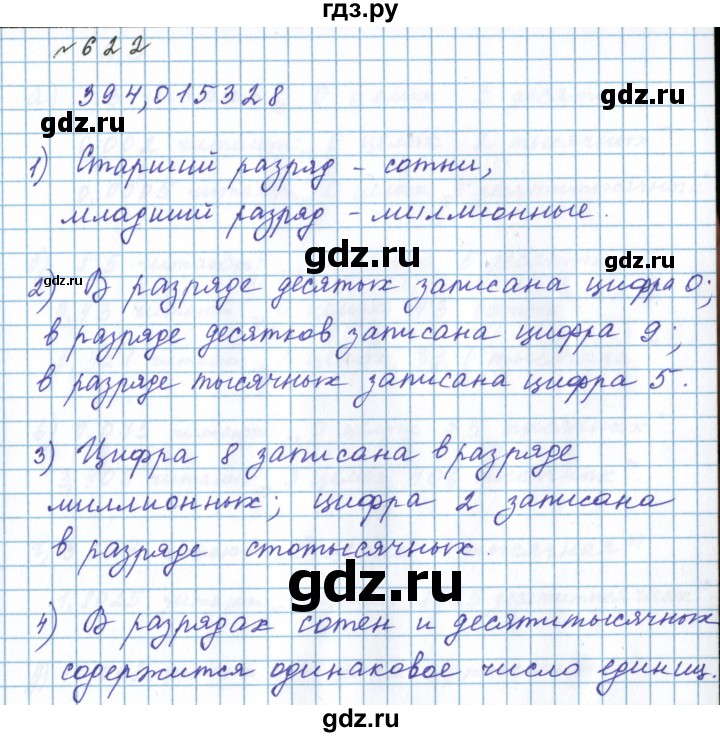 гдз.ру
№622
394,015328
gdz.ru gdz.ru
1) Старший разряд - сотни,
младший разряд - миллионные.
gdz.ru
gdz.ru gdz.ru
2) В разряде десятых записана цифра 0;
в разряде десятков записана цифра 9;
в разряде тысячных записана цифра 5.
gdz.ru gdz.ru
3) Цифра 8 записана в разряде
миллионных; цифра 2 записана
в разряде стотысячных.
gdz.ru
4) В разрядах сотен и десятитысячных
содержится одинаковое число единиц.
gdz.ru